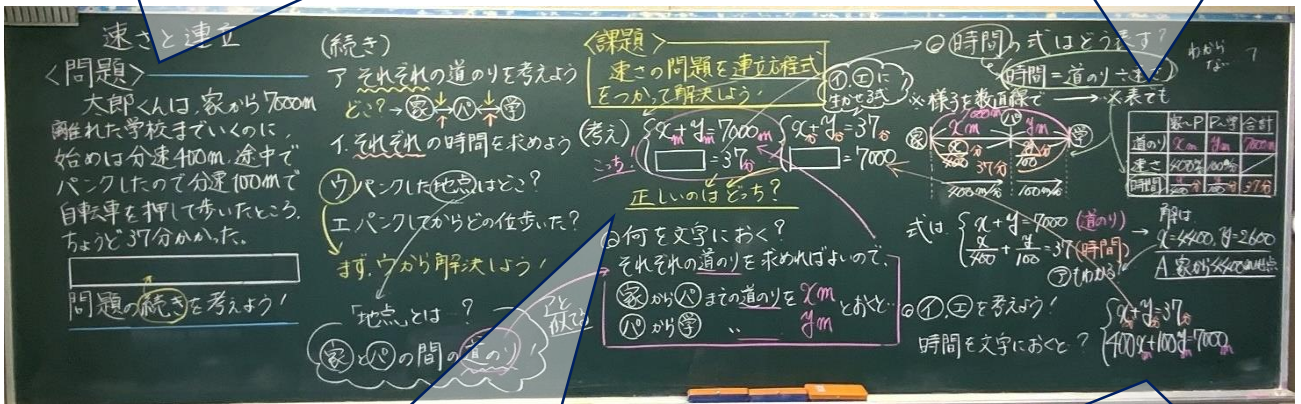 速さと連立
〈問題〉
太郎くんは、家から7000m
離れた学校までいくのに、
始めは分速400m、途中で
パンクしたので分速100mで
自転車を押して歩いたところ、
ちょうど37分かかった。
問題の続きを考えよう!
(続き)
ア それぞれの道のりを考えよう
どこ?→家→パ→学
イ. それぞれの時間を求めよう
ウ パンクした地点はどこ?
エ パンクしてからどの位歩いた?
まず、ウから解決しよう!
「地点」とは…?
アと似てる
家とパの間の道のり
〈課題〉
速さの問題を連立方程式
をつかって解決しよう!
イ、エに
生かせる式
(考え)
x m + y m = 7000 m
= 37分
こっち!
x分 + y分 = 37分
= 7000
正しいのはどっち?
◎何を文字におく?
それぞれの道のりを求めればよいので、
家からパまでの道のりをxm
パから学 〃 ym
とおくと…
◎時間の式はどう表す?
わから
ない
?
時間=道のり÷速さ
※様子を数直線で → ※表でも
7000m
家 xm パ ym 学
x/400分 37分 y/100分
400m/分 100m/分
家~P P~学 合計
道のり xm ym 7000m
速さ 400m/分 100m/分
時間 x/400分 y/100分 37分
式は
x + y = 7000 (道のり)
x/400 + y/100 = 37 (時間)
→ 解は
x=4400, y=2600
A 家から4400m地点
アもわかる!
◎イ、エを考えよう!
時間を文字におくと?
x分 + y分 = 37分
400x m + 100y m = 7000 m